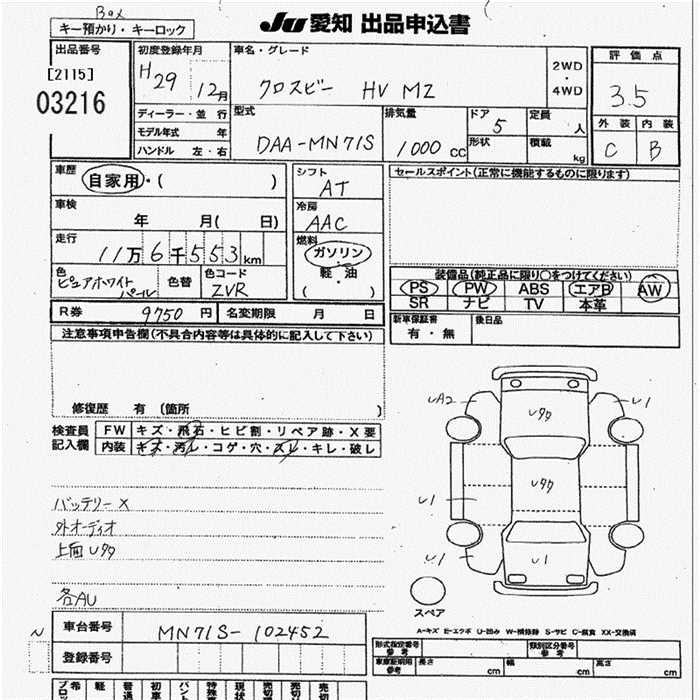 Box
キー預かり・キーロック
JU 愛知 出品申込書
出品番号
[2115]
03216
初度登録年月
H 29 12月
車名・グレード
クロスビー HV MZ
2WD
・
4WD
評価点
3.5
外装 内装
C B
ディーラー・並行
モデル年式 年
ハンドル 左・右
型式
DAA-MN71S
排気量
1000 cc
ドア
5
形状
定員
人
積載
kg
車歴
自家用・( )
車検
年 月( 日)
走行
11万6千553km
色
ピュアホワイト
パール
色替
色コード
ZVR
シフト
AT
冷房
AAC
燃料
ガソリン
・
軽・油
( )
セールスポイント(正常に機能するものに限ります)
装備品(純正品に限り○をつけてください)
PS PW ABS エアB AW
SR ナビ TV 本革
新車保証書
有・無
後日品
R券 9750 円
名変期限 月 日
注意事項申告欄(不具合内容等は具体的に記入して下さい)
修復歴 有 (箇所 )
検査員
記入欄
FW キズ・飛石・ヒビ割・リペア跡・X要
内装 キズ・汚れ・コゲ・穴・スレ・キレ・破レ
バッテリーX
外オーディオ
上面Uタク
各AU
UA2
U1
Uタク
Uタク
U1
U1
U1
スペア
A-キズ E-エクボ U-凹み W-補修跡 S-サビ C-腐食 XX-交換済
N
車台番号
MN71S-102452
登録番号
形式指定番号
参考
類別区分番号
参考
車庫証明用
参考
長さ cm 幅 cm 高さ cm
希 軽